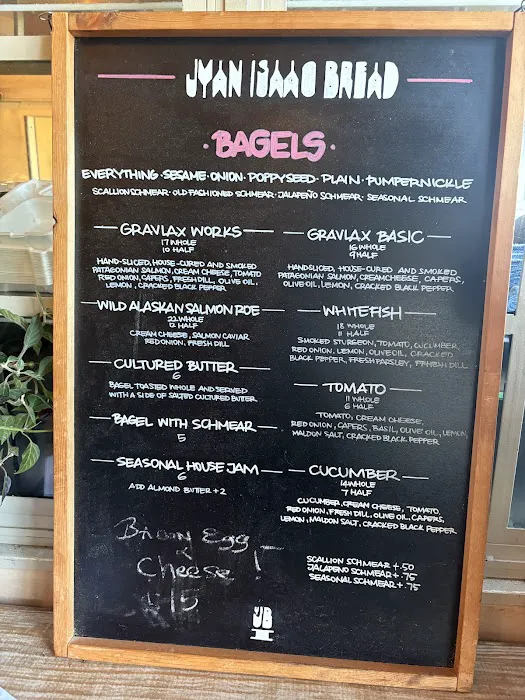 JYAN ISAAC BREAD
·BAGELS·
EVERYTHING·SESAME·ONION·POPPYSEED·PLAIN·PUMPERNICKLE
SCALLION SCHMEAR·OLD FASHIONED SCHMEAR·JALAPEÑO SCHMEAR·SEASONAL SCHMEAR
GRAVLAX WORKS
17 WHOLE
10 HALF
HAND-SLICED, HOUSE-CURED AND SMOKED
PATAGONIAN SALMON, CREAM CHEESE, TOMATO
RED ONION, CAPERS, FRESH DILL, OLIVE OIL,
LEMON, CRACKED BLACK PEPPER
WILD ALASKAN SALMON ROE
22 WHOLE
12 HALF
CREAM CHEESE, SALMON CAVIAR
RED ONION, FRESH DILL
CULTURED BUTTER
6
BAGEL TOASTED WHOLE AND SERVED
WITH A SIDE OF SALTED CULTURED BUTTER
BAGEL WITH SCHMEAR
5
SEASONAL HOUSE JAM
6
ADD ALMOND BUTTER +2
GRAVLAX BASIC
16 WHOLE
9 HALF
HAND-SLICED, HOUSE-CURED AND SMOKED
PATAGONIAN SALMON, CREAM CHEESE, CAPERS,
OLIVE OIL, LEMON, CRACKED BLACK PEPPER
WHITEFISH
18 WHOLE
11 HALF
SMOKED STURGEON, TOMATO, CUCUMBER,
RED ONION, LEMON, OLIVE OIL, CRACKED
BLACK PEPPER, FRESH PARSLEY, FRESH DILL
TOMATO
11 WHOLE
6 HALF
TOMATO, CREAM CHEESE,
RED ONION, CAPERS, BASIL, OLIVE OIL, LEMON,
MALDON SALT, CRACKED BLACK PEPPER
CUCUMBER
14 WHOLE
7 HALF
CUCUMBER, CREAM CHEESE, TOMATO,
RED ONION, FRESH DILL, OLIVE OIL, CAPERS,
LEMON, MALDON SALT, CRACKED BLACK PEPPER
SCALLION SCHMEAR +.50
JALAPEÑO SCHMEAR +.75
SEASONAL SCHMEAR +.75
Egg
Cheese!
15
JB